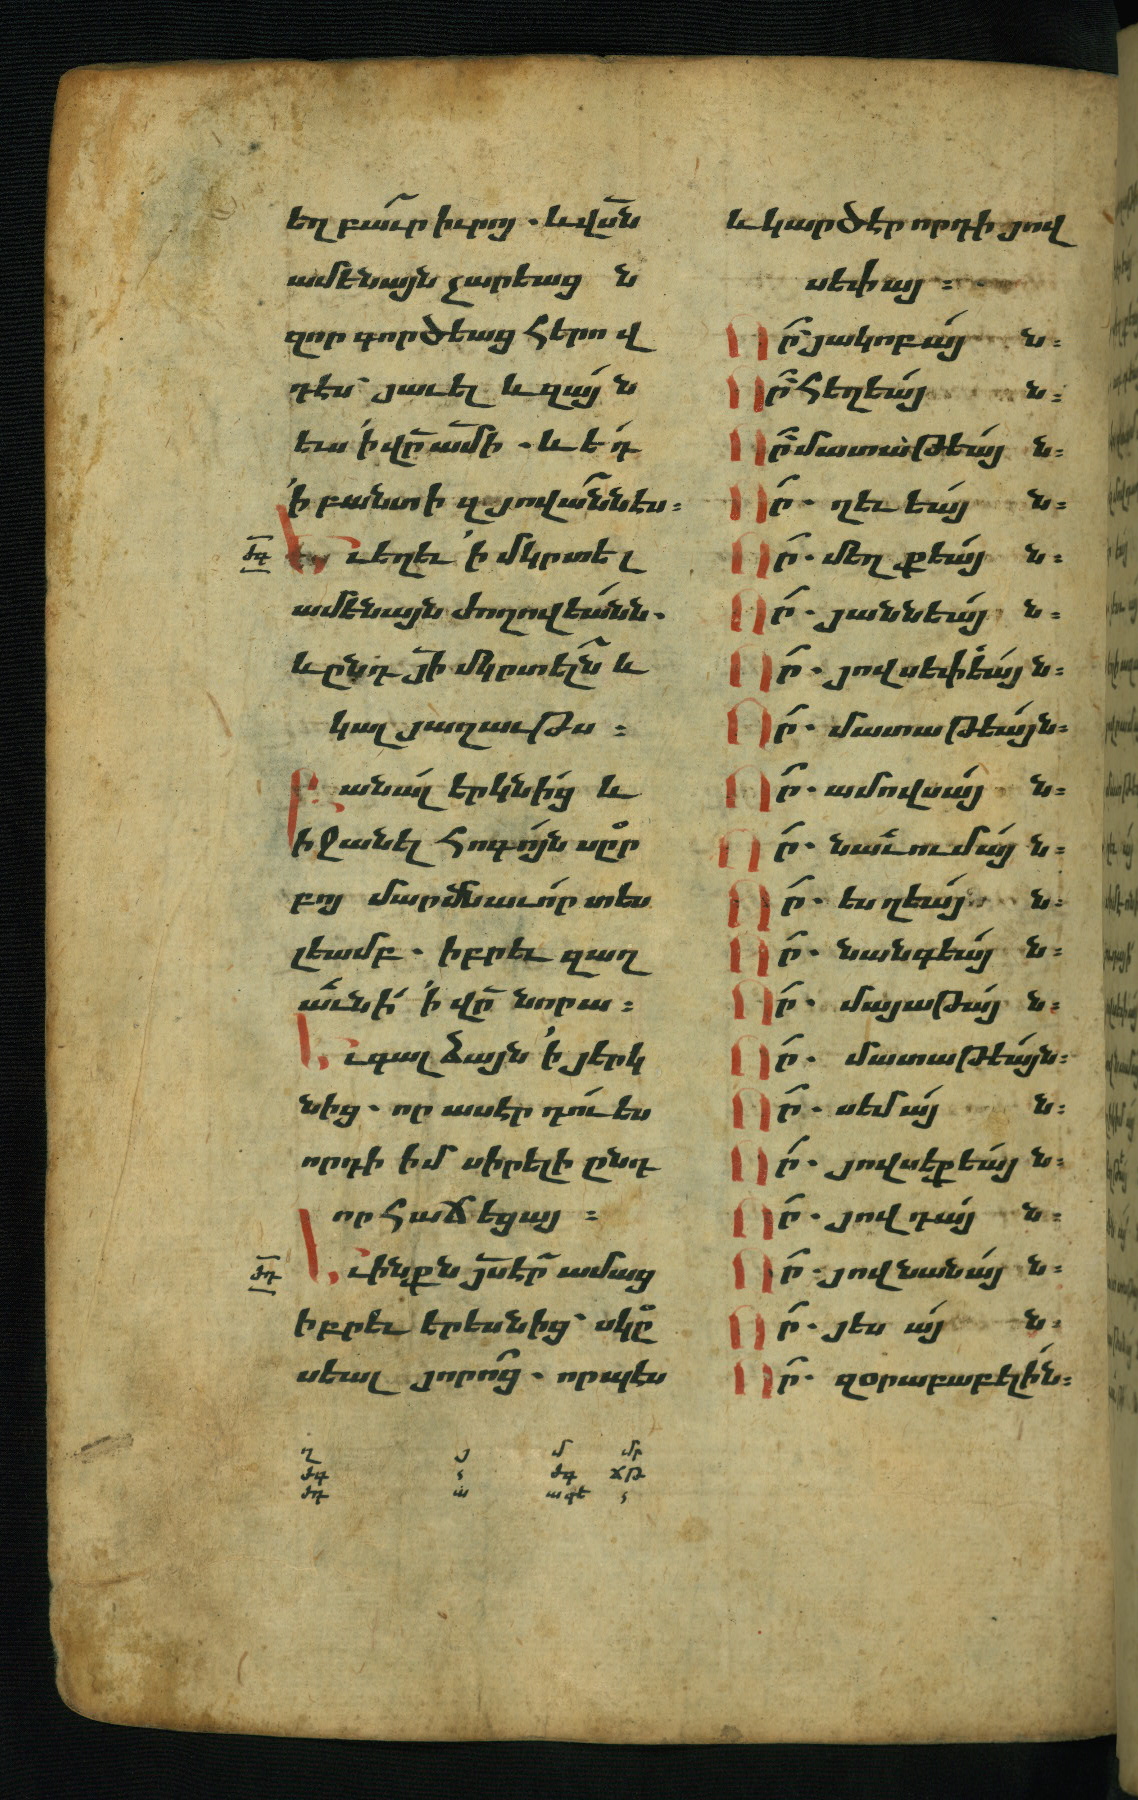 եղբաւր իւրոյ. և վսն
ամենայն չարեաց ն
զոր գործեաց հերով
դէս՝ յաւել և զայն
ևս ՛ի վր ամի. և եդ
՛ի բանտի զյովաննես։
ԺԳ Եւ եղեւ ՛ի մկրտել
ամենայն ժողովեանն.
և ընդ յի մկրտելն և
կալ յաղաւթս։
Բանալ երկնից և
իջանել հոգոյն սր
բոյ մարմնաւոր տես
լեամբ. իբրեւ զաղ
աւնի ՛ի վր նորա։
Եւ գալ ձայն ՛ի յերկ
նից. որ ասէր դու ես
որդի իմ սիրելի ընդ
որ հաճեցայ։
ԺԴ Եւ ինքն յս էր ամաց
իբրեւ երեսնից՝ սկը
սեալ յորոց. որպես
և կարծէր որդի յով
սեփայ։
Որ՝ յակոբայ ն։
Որ՝ հեղեայ ն։
Որ՝ մատաթեայ ն։
Որ. ղեւեայ ն։
Որ. մեղքեայ ն։
Որ. յաննեայ ն։
Որ. յովսեփեայ ն։
Որ. մատաթեայն։
Որ. ամովսայ ն։
Որ. նաւումայ ն։
Որ. եսղեայ ն։
Որ. նանգեայ ն։
Որ. մայաթայ ն։
Որ. մատաթեայն։
Որ. սեմայ ն։
Որ. յովսէքեայ ն։
Որ. յովդայ ն։
Որ. յովնանայ ն։
Որ. յեսայ ն։
Որ. զօրաբաբելին։
Ղ Յ Մ ՄՐ
ԺԳ ԺԳ ՃԹ
ԺԴ